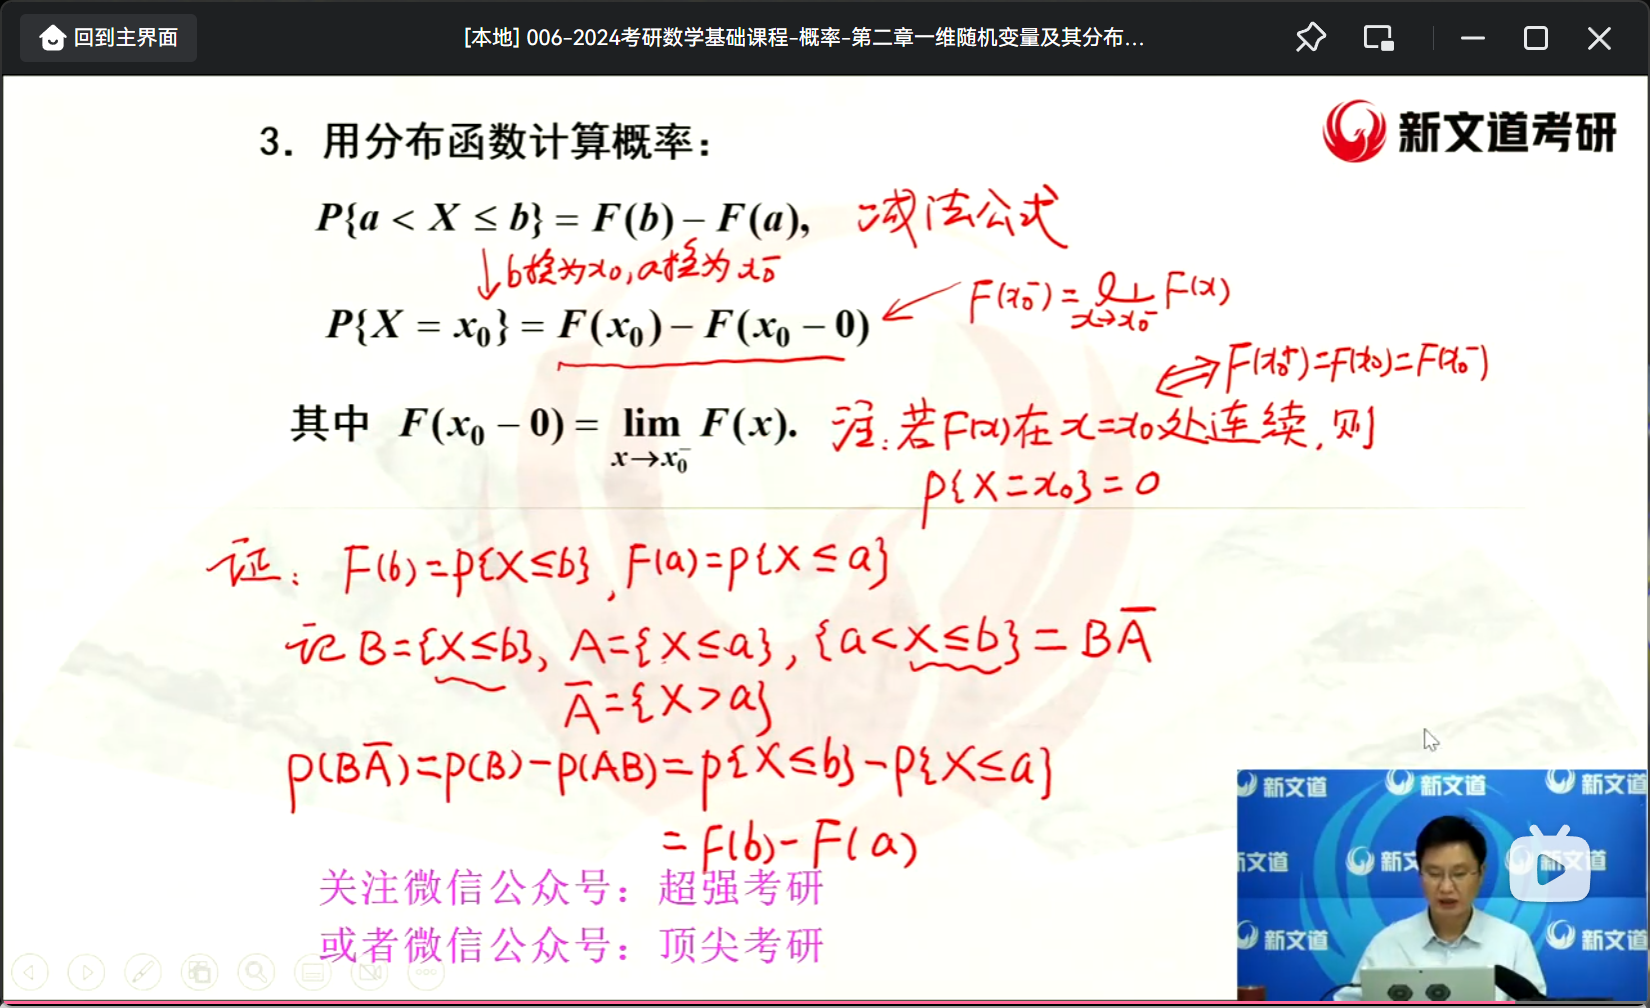 回到主界面
[本地] 006-2024考研数学基础课程-概率-第二章一维随机变量及其分布...
新文道考研
3. 用分布函数计算概率：
P{a < X ≤ b} = F(b) − F(a), 减法公式
↓b换为x₀, a换为x₀⁻
P{X = x₀} = F(x₀) − F(x₀ − 0)
F(x₀⁻) = lim F(x)
x→x₀⁻
⇔ F(x₀⁺)=F(x₀)=F(x₀⁻)
其中 F(x₀ − 0) = lim F(x).
x→x₀⁻
注: 若F(x)在x=x₀处连续, 则
P{X=x₀}=0
证: F(b)=P{X≤b}, F(a)=P{X≤a}
记 B={X≤b}, A={X≤a}, {a<X≤b}=BA̅
A̅={X>a}
P(BA̅)=P(B)-P(AB)=P{X≤b}-P{X≤a}
=F(b)-F(a)
关注微信公众号：超强考研
或者微信公众号：顶尖考研
新文道 新文道 新文道
新文道 新文 新文道
新文道 新文道